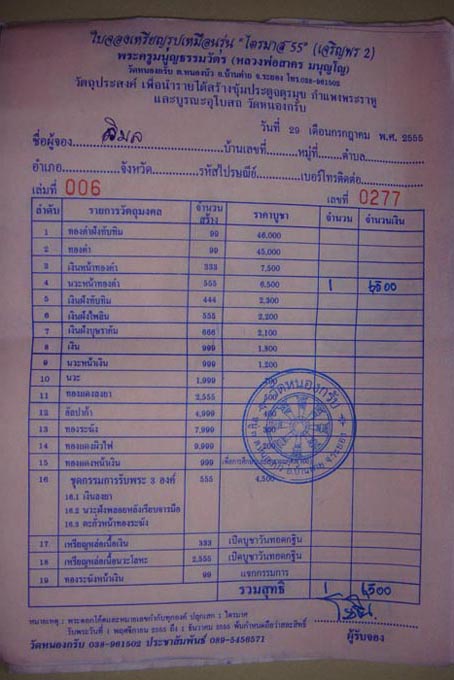 ใบจองเหรียญรูปเหมือนรุ่น "ไตรมาส 55" (เจริญพร 2)
พระครูมนูญธรรมวัตร (หลวงพ่อสาคร มนุญโญ)
วัดหนองกรับ ต.หนองบัว อ.บ้านค่าย จ.ระยอง โทร.038-961502
วัตถุประสงค์ เพื่อนำรายได้สร้างซุ้มประตูจตุรมุข กำแพงพระราหู
และบูรณะอุโบสถ วัดหนองกรับ
วันที่ 29 เดือนกรกฎาคม พ.ศ. 2555
ชื่อผู้จอง วิมล บ้านเลขที่ หมู่ที่ ตำบล
อำเภอ จังหวัด รหัสไปรษณีย์ เบอร์โทรติดต่อ
เล่มที่ 006 เลขที่ 0277
ลำดับ รายการวัตถุมงคล จำนวนสร้าง ราคาบูชา จำนวน จำนวนเงิน
1 ทองคำฝังทับทิม 99 46,000
2 ทองคำ 99 45,000
3 เงินหน้าทองคำ 333 7,500
4 นวะหน้าทองคำ 555 6,500 1 6,500
5 เงินฝังทับทิม 444 2,300
6 เงินฝังไพลิน 555 2,200
7 เงินฝังบุษราคัม 666 2,100
8 เงิน 999 1,800
9 นวะหน้าเงิน 999 1,200
10 นวะ 1,999
11 ทองแดงลงยา 2,555 500
12 อัลปาก้า 4,999
13 ทองระฆัง 7,999
14 ทองแดงผิวไฟ 9,999
15 ทองแดงหน้าเงิน 999
16 ชุดกรรมการรับพระ 3 องค์ 555 4,500
16.1 เงินลงยา
16.2 นวะฝังพลอยหลังเรียบจารมือ
16.3 ตะกั่วหน้าทองระฆัง
17 เหรียญหล่อเนื้อเงิน 333 เปิดบูชาวันทอดกฐิน
18 เหรียญหล่อเนื้อนวะโลหะ 2,555 เปิดบูชาวันทอดกฐิน
19 ทองระฆังหน้าเงิน 99 แจกกรรมการ
รวมสุทธิ 1 6,500
หมายเหตุ : พระตอกโค้ดและหมายเลขกำกับทุกองค์ ปลุกเสก 1 ไตรมาส
รับพระวันที่ 1 พฤศจิกายน 2555 ถึง 1 ธันวาคม 2555 พ้นกำหนดถือว่าสละสิทธิ์
ผู้รับจอง
วัดหนองกรับ 038-961502 ประชาสัมพันธ์ 089-5456571